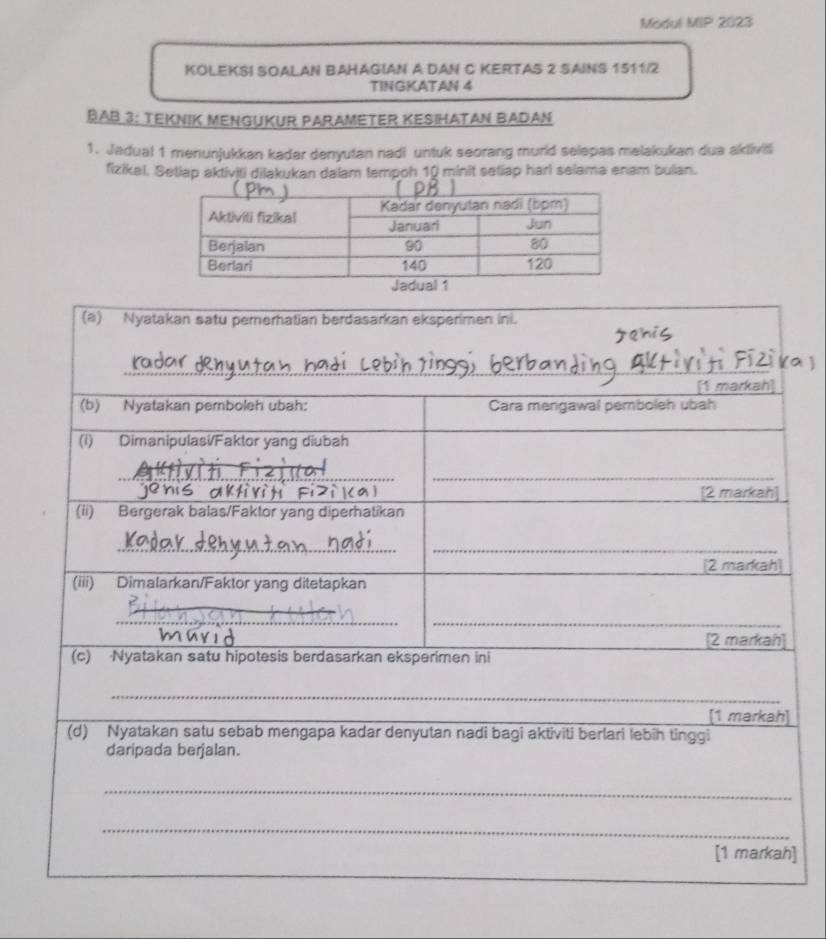 Modul MIP 2023
KOLEKSI SOALAN BAHAGIAN A DAN C KERTAS 2 SAINS 1511/2
TINGKATAN 4
BAB 3: TEKNIK MENGUKUR PARAMETER KESIHATAN BADAN
1. Jadual 1 menunjukkan kadar denyutan nadi untuk seorang murid selepas melakukan dua aktiviti
fizikal. Setiap aktiviti dilakukan dalam tempoh 10 minit setiap hari selama enam bulan.
(PM) (PB)
Aktiviti fizikal Kadar denyutan nadi (bpm)
Januari Jun
Berjalan 90 80
Berlari 140 120
Jadual 1
(a) Nyatakan satu pemerhatian berdasarkan eksperimen ini.
jenis
kadar denyutan nadi lebih tinggi berbanding aktiviti Fizikal
[1 markah]
(b) Nyatakan pemboleh ubah: Cara mengawal pemboleh ubah
(i) Dimanipulasi/Faktor yang diubah
Aktiviti Fizikal
jenis aktiviti Fizikal
[2 markah]
(ii) Bergerak balas/Faktor yang diperhatikan
Kadar denyutan nadi
[2 markah]
(iii) Dimalarkan/Faktor yang ditetapkan
Bilangan
murid
[2 markah]
(c) Nyatakan satu hipotesis berdasarkan eksperimen ini
[1 markah]
(d) Nyatakan satu sebab mengapa kadar denyutan nadi bagi aktiviti berlari lebih tinggi
daripada berjalan.
[1 markah]